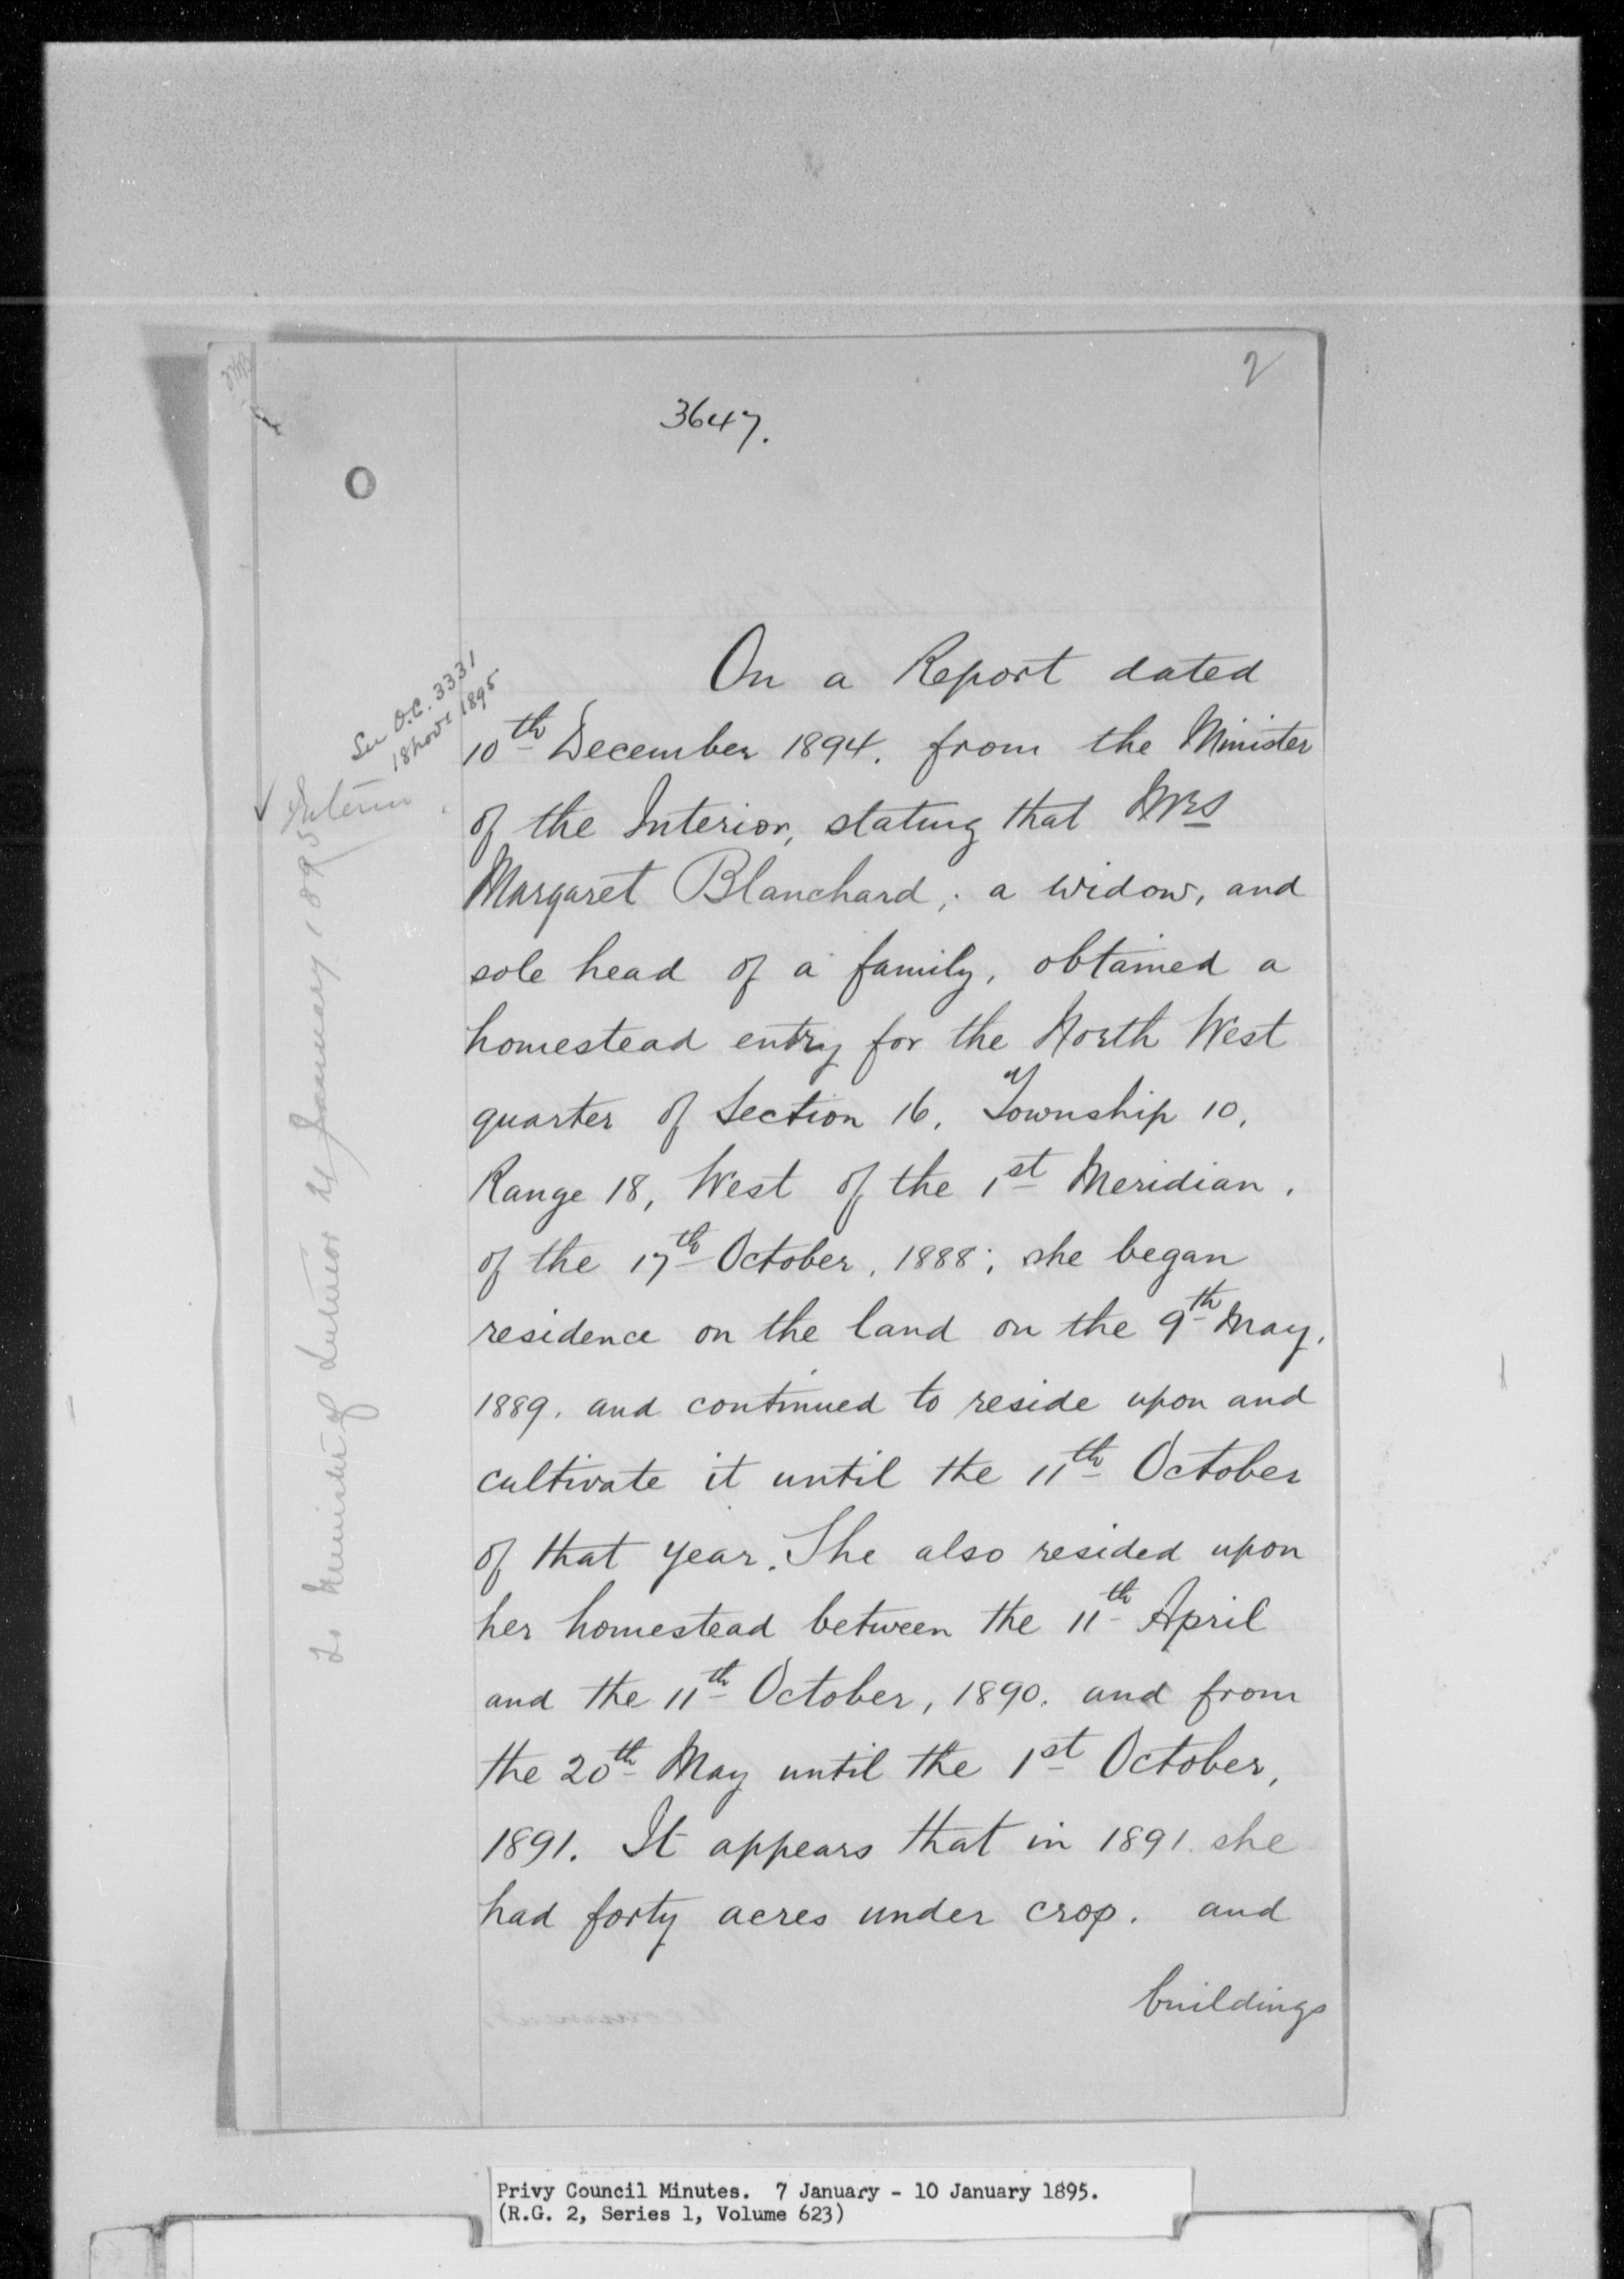 2
3647.
See O.C. 3331
18 Novr 1895
Interior
To Minister of Interior 11 January 1895
On a Report dated
10th December 1894. from the Minister
of the Interior, stating that Mrs
Margaret Blanchard, a widow, and
sole head of a family, obtained a
homestead entry for the North West
quarter of Section 16, Township 10,
Range 18, West of the 1st Meridian.
of the 17th October, 1888; she began
residence on the land on the 9th May,
1889. and continued to reside upon and
cultivate it until the 11th October
of that year. She also resided upon
her homestead between the 11th April
and the 11th October, 1890. and from
the 20th May until the 1st October,
1891. It appears that in 1891 she
had forty acres under crop. and
buildings
Privy Council Minutes. 7 January - 10 January 1895.
(R.G. 2, Series 1, Volume 623)